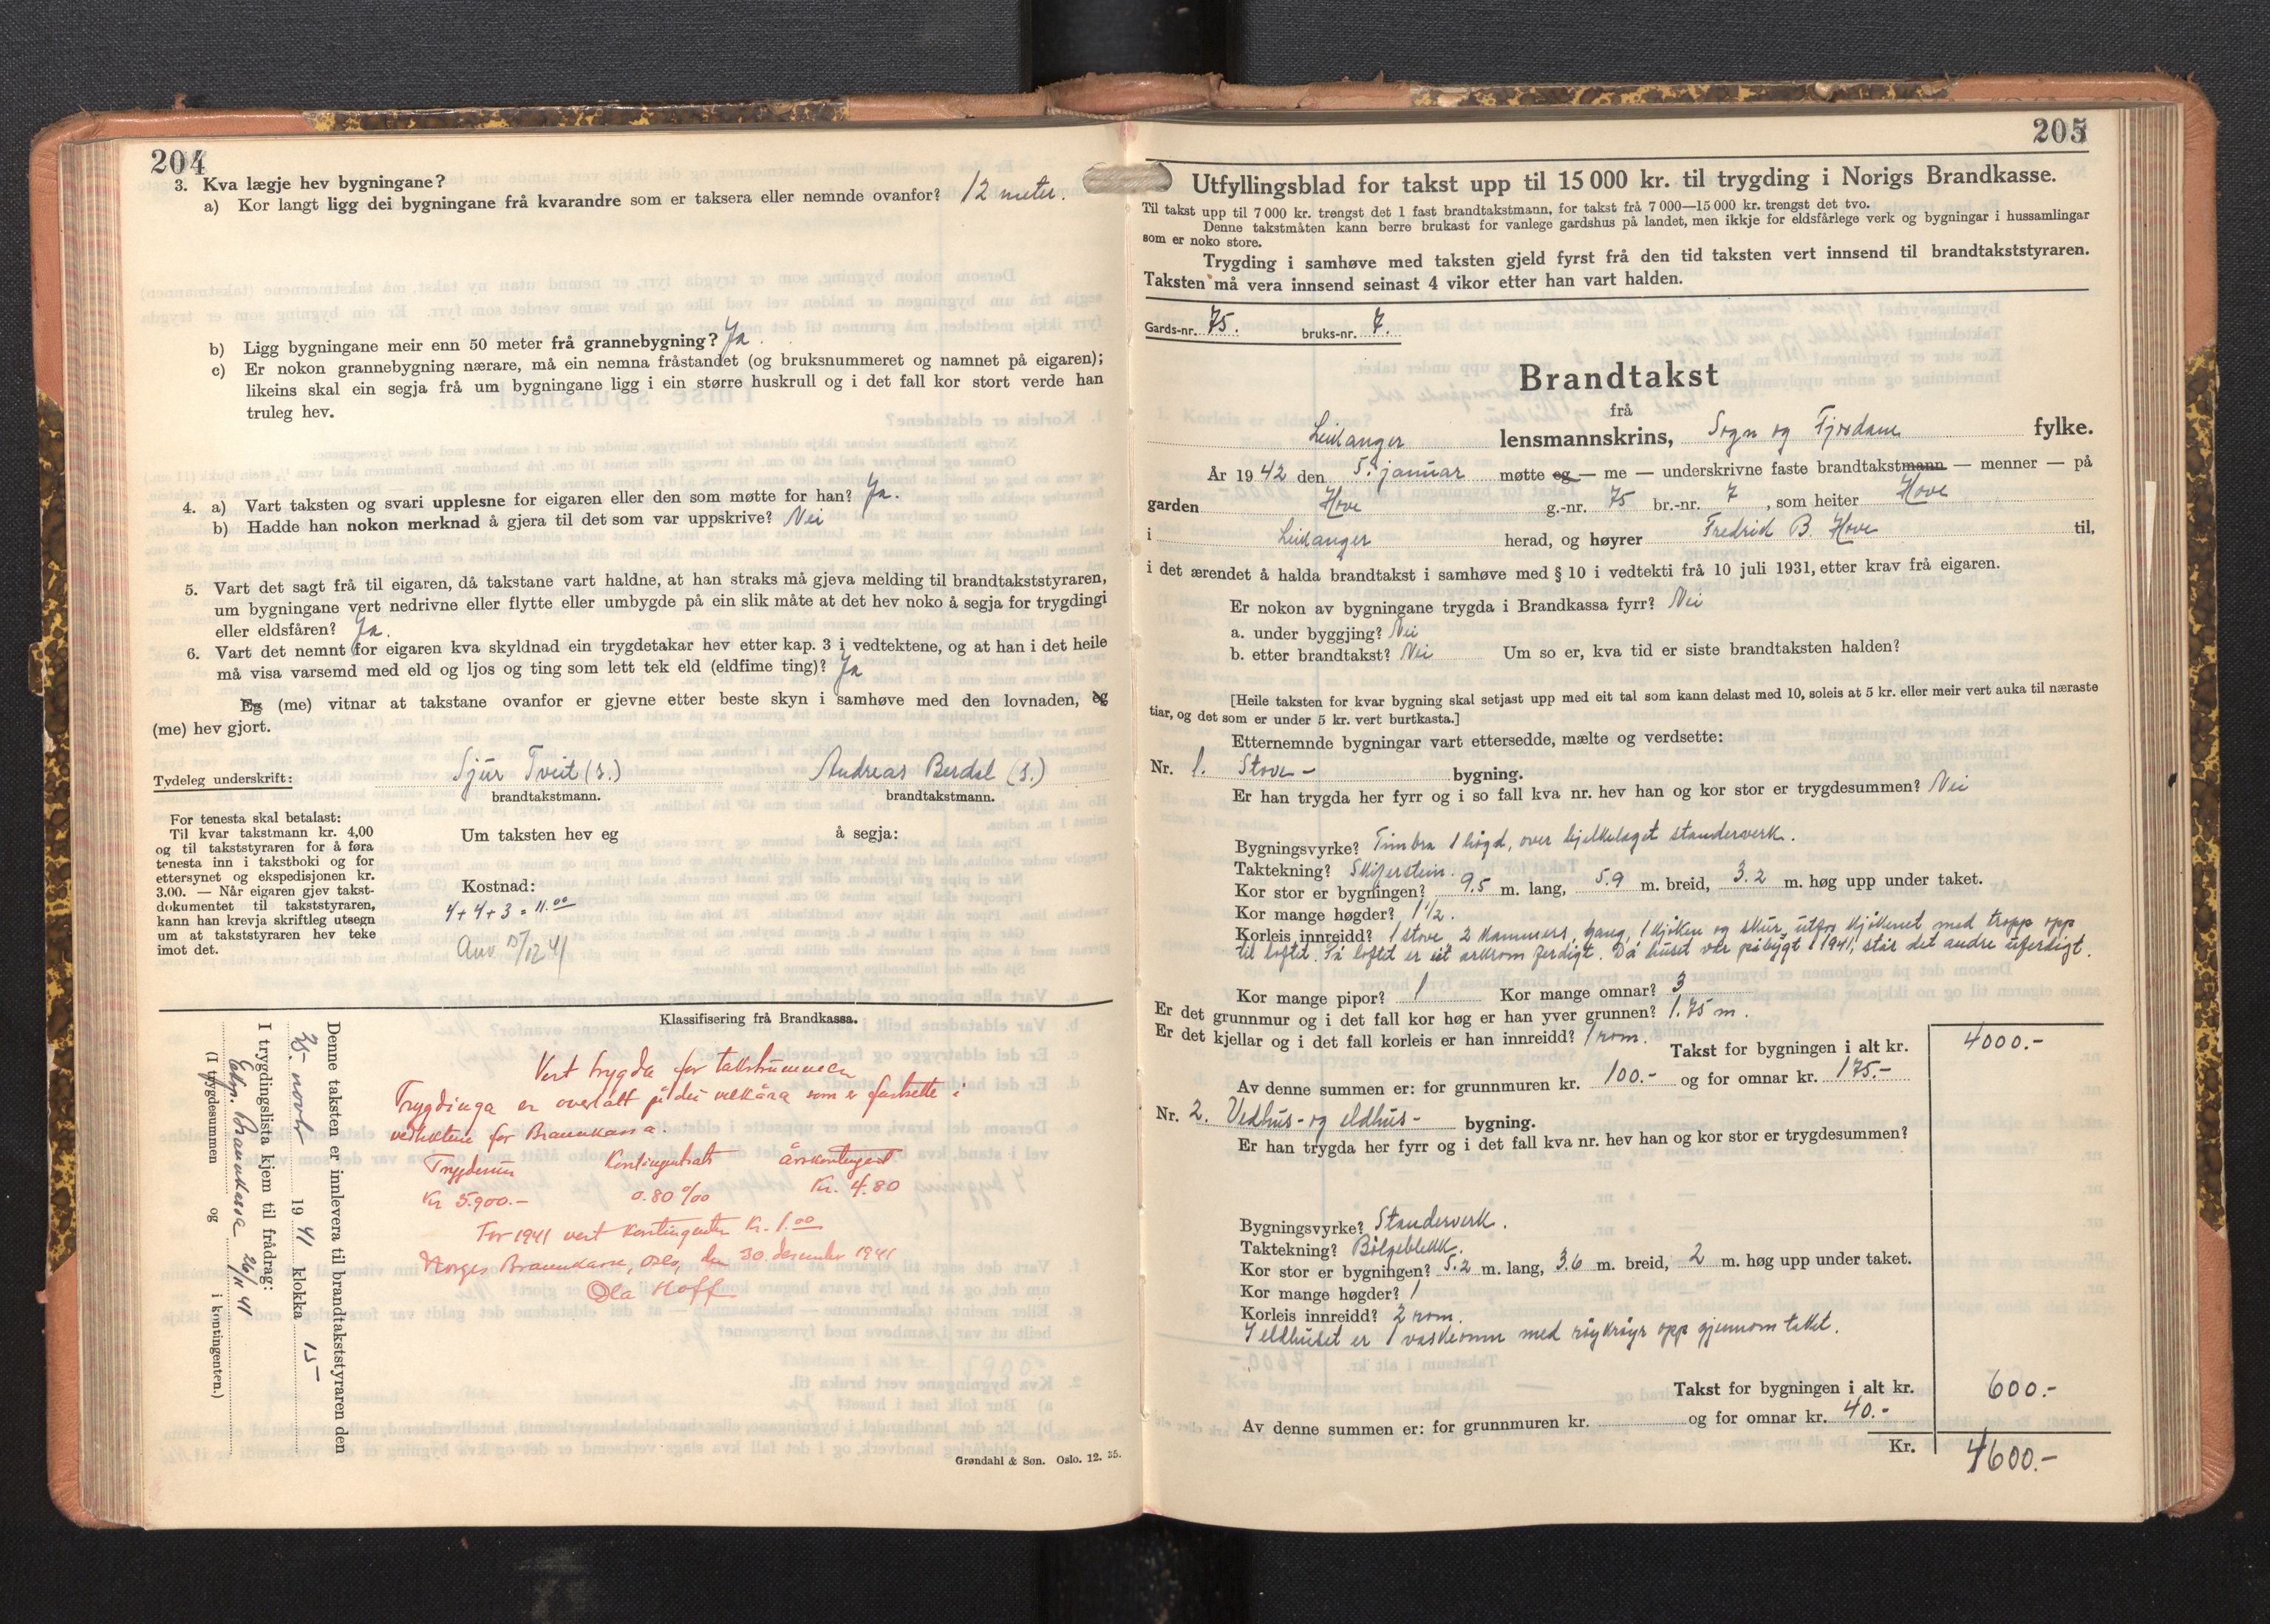 204
3. Kva lægje hev bygningane?
a) Kor langt ligg dei bygningane frå kvarandre som er taksera eller nemnde ovanfor? 12 meter.
b) Ligg bygningane meir enn 50 meter frå grannebygning? Ja.
c) Er nokon grannebygning nærare, må ein nemna fråstandet (og bruksnummeret og namnet på eigaren);
likeins skal ein segja frå um bygningane ligg i ein større huskrull og i det fall kor stort verde han
truleg hev.
4. a) Vart taksten og svari upplesne for eigaren eller den som møtte for han? Ja.
b) Hadde han nokon merknad å gjera til det som var uppskrive? Nei
5. Vart det sagt frå til eigaren, då takstane vart haldne, at han straks må gjeva melding til brandtakststyraren,
um bygningane vert nedrivne eller flytte eller umbygde på ein slik måte at det hev noko å segja for trygdingi
eller eldsfåren? Ja.
6. Vart det nemnt for eigaren kva skyldnad ein trygdetakar hev etter kap. 3 i vedtektene, og at han i det heile
må visa varsemd med eld og ljos og ting som lett tek eld (eldfime ting)? Ja
Eg (me) vitnar at takstane ovanfor er gjevne etter beste skyn i samhøve med den lovnaden, eg
(me) hev gjort.
Tydeleg underskrift: Sjur Tveit (s.) Andreas Berdal (s.)
brandtakstmann. brandtakstmann.
For tenesta skal betalast:
Til kvar takstmann kr. 4,00
og til takststyraren for å føra
tenesta inn i takstboki og for
ettersynet og ekspedisjonen kr.
3.00. — Når eigaren gjev takst-
dokumentet til takststyraren,
kann han krevja skriftleg utsegn
um at takststyraren hev teke
imot det.
Um taksten hev eg å segja:
Kostnad:
4 + 4 + 3 = 11.00
Anv 15/12 41
Klassifisering frå Brandkassa.
Vert trygda for takstsummen
Trygdinga er overalt på dei vilkåra som er fastsette i
vedtektene for Brannkassa.
Trygdesum Kontingentsats Årskontingent
Kr 5.900.- 0.80 ‰ Kr. 4.80
For 1941 vert kontingenten Kr. 1.00
Norges Brannkasse, Oslo, den 30. desember 1941
Ola Hoff
Denne taksten er innlevera til brandtakststyraren den
25. novbr 1941 klokka 15-
I trygdingslista kjem til frådrag:
Eksp. Brannkassa 26/11 41
(I trygdesummen og i kontingenten.)
Grøndahl & Søn. Oslo. 12. 35.
205
Utfyllingsblad for takst upp til 15 000 kr. til trygding i Norigs Brandkasse.
Til takst upp til 7 000 kr. trengst det 1 fast brandtakstmann, for takst frå 7 000—15 000 kr. trengst det tvo.
Denne takstmåten kann berre brukast for vanlege gardshus på landet, men ikkje for eldsfårlege verk og bygningar i hussamlingar
som er noko store.
Trygding i samhøve med taksten gjeld fyrst frå den tid taksten vert innsend til brandtakststyraren.
Taksten må vera innsend seinast 4 vikor etter han vart halden.
Gards-nr. 75. bruks-nr. 7.
Brandtakst
frå
Leikanger lensmannskrins, Sogn og Fjordane fylke.
År 1942 den 5. januar møtte eg — me — underskrivne faste brandtakstmann — menner — på
garden Hove g.-nr. 75 br.-nr. 7, som heiter Hove
i Leikanger herad, og høyrer Fredrik B. Hove til,
i det ærendet å halda brandtakst i samhøve med § 10 i vedtekti frå 10 juli 1931, etter krav frå eigaren.
Er nokon av bygningane trygda i Brandkassa fyrr? Nei
a. under byggjing? Nei
b. etter brandtakst? Nei Um so er, kva tid er siste brandtaksten halden?
[Heile taksten for kvar bygning skal setjast upp med eit tal som kann delast med 10, soleis at 5 kr. eller meir vert auka til næraste
tiar, og det som er under 5 kr. vert burtkasta.]
Etternemnde bygningar vart ettersedde, mælte og verdsette:
Nr. 1. Stove- bygning.
Er han trygda her fyrr og i so fall kva nr. hev han og kor stor er trygdesummen? Nei
Bygningsvyrke? Timbra 1 høgd, over bjelkelaget standerverk.
Taktekning? Skiferstein.
Kor stor er bygningen? 9.5 m. lang, 5.9 m. breid, 3.2 m. høg upp under taket.
Kor mange høgder? 1½.
Korleis innreidd? 1 stove 2 kammers, gang, 1 kjøken og skur utfor kjøkenet med tropp opp
til loftet. På loftet er eit arkrom ferdigt. Då huset var påbygt i 1941, står det andre uferdigt.
Kor mange pipor? 1 Kor mange omnar? 3
Er det grunnmur og i det fall kor høg er han yver grunnen? 1.75 m.
Er det kjellar og i det fall korleis er han innreidd? 1 rom.
Takst for bygningen i alt kr. 4000.-
Av denne summen er: for grunnmuren kr. 100.- og for omnar kr. 175.-
Nr. 2. Vedhus- og eldhus- bygning.
Er han trygda her fyrr og i det fall kva nr. hev han og kor stor er trygdesummen?
Bygningsvyrke? Standerverk.
Taktekning? Bølgeblekk.
Kor stor er bygningen? 5.2 m. lang, 3.6 m. breid, 2 m. høg upp under taket.
Kor mange høgder? 1
Korleis innreidd? 2 rom.
I eldhuset er 1 vaskeomn med røykrøyr opp gjennom taket.
Takst for bygningen i alt kr. 600.-
Av denne summen er: for grunnmuren kr. og for omnar kr. 40.-
Kr. 4600.-